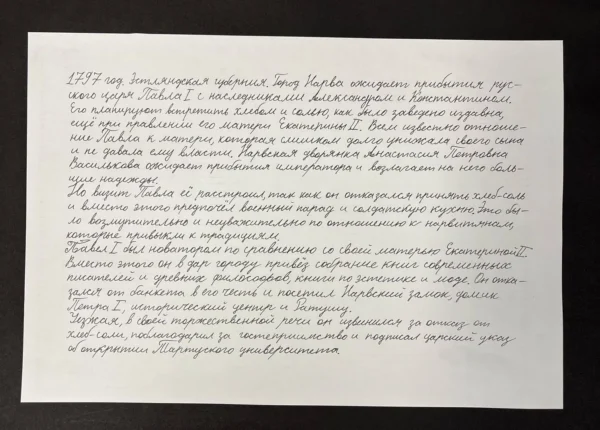 1797 год. Эстляндская губерния. Город Нарва ожидает прибытия рус-
ского царя Павла I с наследниками Александром и Константином.
Его планируют встретить хлебом и солью, как было заведено издавна,
ещё при правлении его матери Екатерины II. Всем известно отноше-
ние Павла к матери, которая слишком долго унижала своего сына
и не давала ему власти. Нарвская дворянка Анастасия Петровна
Василькова ожидает прибытия императора и возлагает на него боль-
шие надежды.
Но визит Павла её расстроил, так как он отказался принять хлеб-соль
и вместо этого предпочёл военный парад и солдатскую кухню. Это бы-
ло возмутительно и неуважительно по отношению к нарвитянам,
которые привыкли к традициям.
Павел I был новатором по сравнению со своей матерью Екатериной II.
Вместо этого он в дар городу привёз собрание книг современных
писателей и древних философов, книги по эстетике и моде. Он отка-
зался от банкета в его честь и посетил Нарвский замок, домик
Петра I, исторический центр и Ратушу.
Уезжая, в своей торжественной речи он извинился за отказ от
хлеб-соли, поблагодарил за гостеприимство и подписал царский указ
об открытии Тартуского университета.